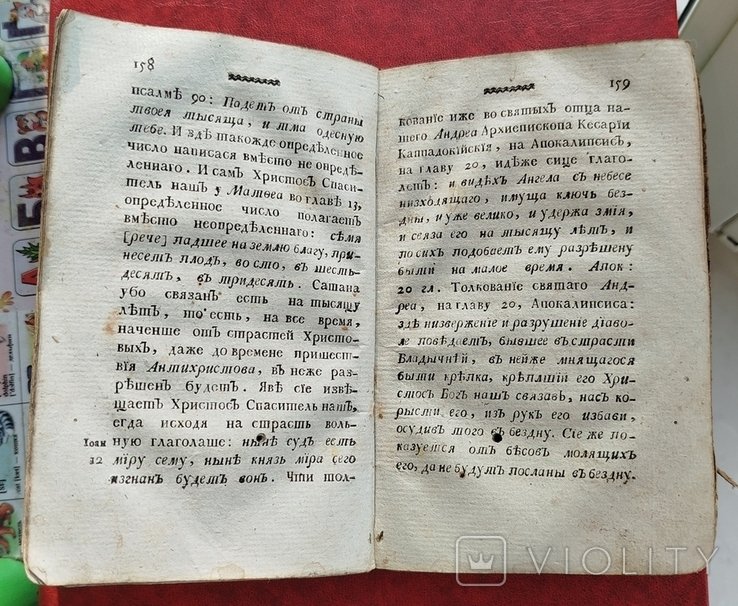 158
псалмѣ 90: Падетъ отъ страны
твоея тысяща, и тма одесную
тебе. И здѣ такожде опредѣленное
число написася вмѣсто не опредѣ-
леннаго. И самъ Христосъ Спаси-
тель нашъ у Матѳеа во главѣ 13,
опредѣленное число полагаетъ
вмѣсто неопредѣленнаго: сѣмя
[рече] падшее на землю благу, при-
несетъ плодъ, во сто, въ шесть-
десятъ, въ тридесять. Сатана
убо связанъ есть на тысящу
лѣтъ, то есть, на все время,
наченше отъ страстей Христо-
выхъ, даже до времене пришест-
вія Антихристова, въ неже раз-
рѣшенъ будетъ. Явѣ сіе извѣ-
щаетъ Христосъ Спаситель нашъ,
егда исходя на страсть воль-
Іоан ную глаголаше: нынѣ судъ есть
12 міру сему, нынѣ князь міра сего
изгнан будетъ вонъ. Чти тол-
159
кованіе иже во святыхъ отца на-
шего Андреа Архіепископа Кесаріи
Каппадокійскія, на Апокалипсисъ,
на главу 20, идѣже сице глаго-
летъ: и видѣхъ Ангела съ небесе
низходящаго, имуща ключь без-
дны, и уже велико, и удержа змія,
и связа его на тысящу лѣтъ, и
по сихъ подобаетъ ему разрѣшену
быти на малое время. Апок:
20 гл. Толкованіе святаго Анд-
реа, на главу 20, Апокалипсиса:
здѣ низверженіе и разрушеніе діаво-
ле повѣдаетъ, бывшее въ страсти
Владычнѣй, въ нейже мнящагося
быти крѣпка, крѣплшій его Хри-
стосъ Богъ нашъ связавъ, насъ ко-
рысти его, изъ рукъ его избави,
осудивъ того въ бездну. Сіе же по-
казуется отъ бѣсовъ молящихъ
его, да не будутъ посланы въ бездну.
VIOLITY